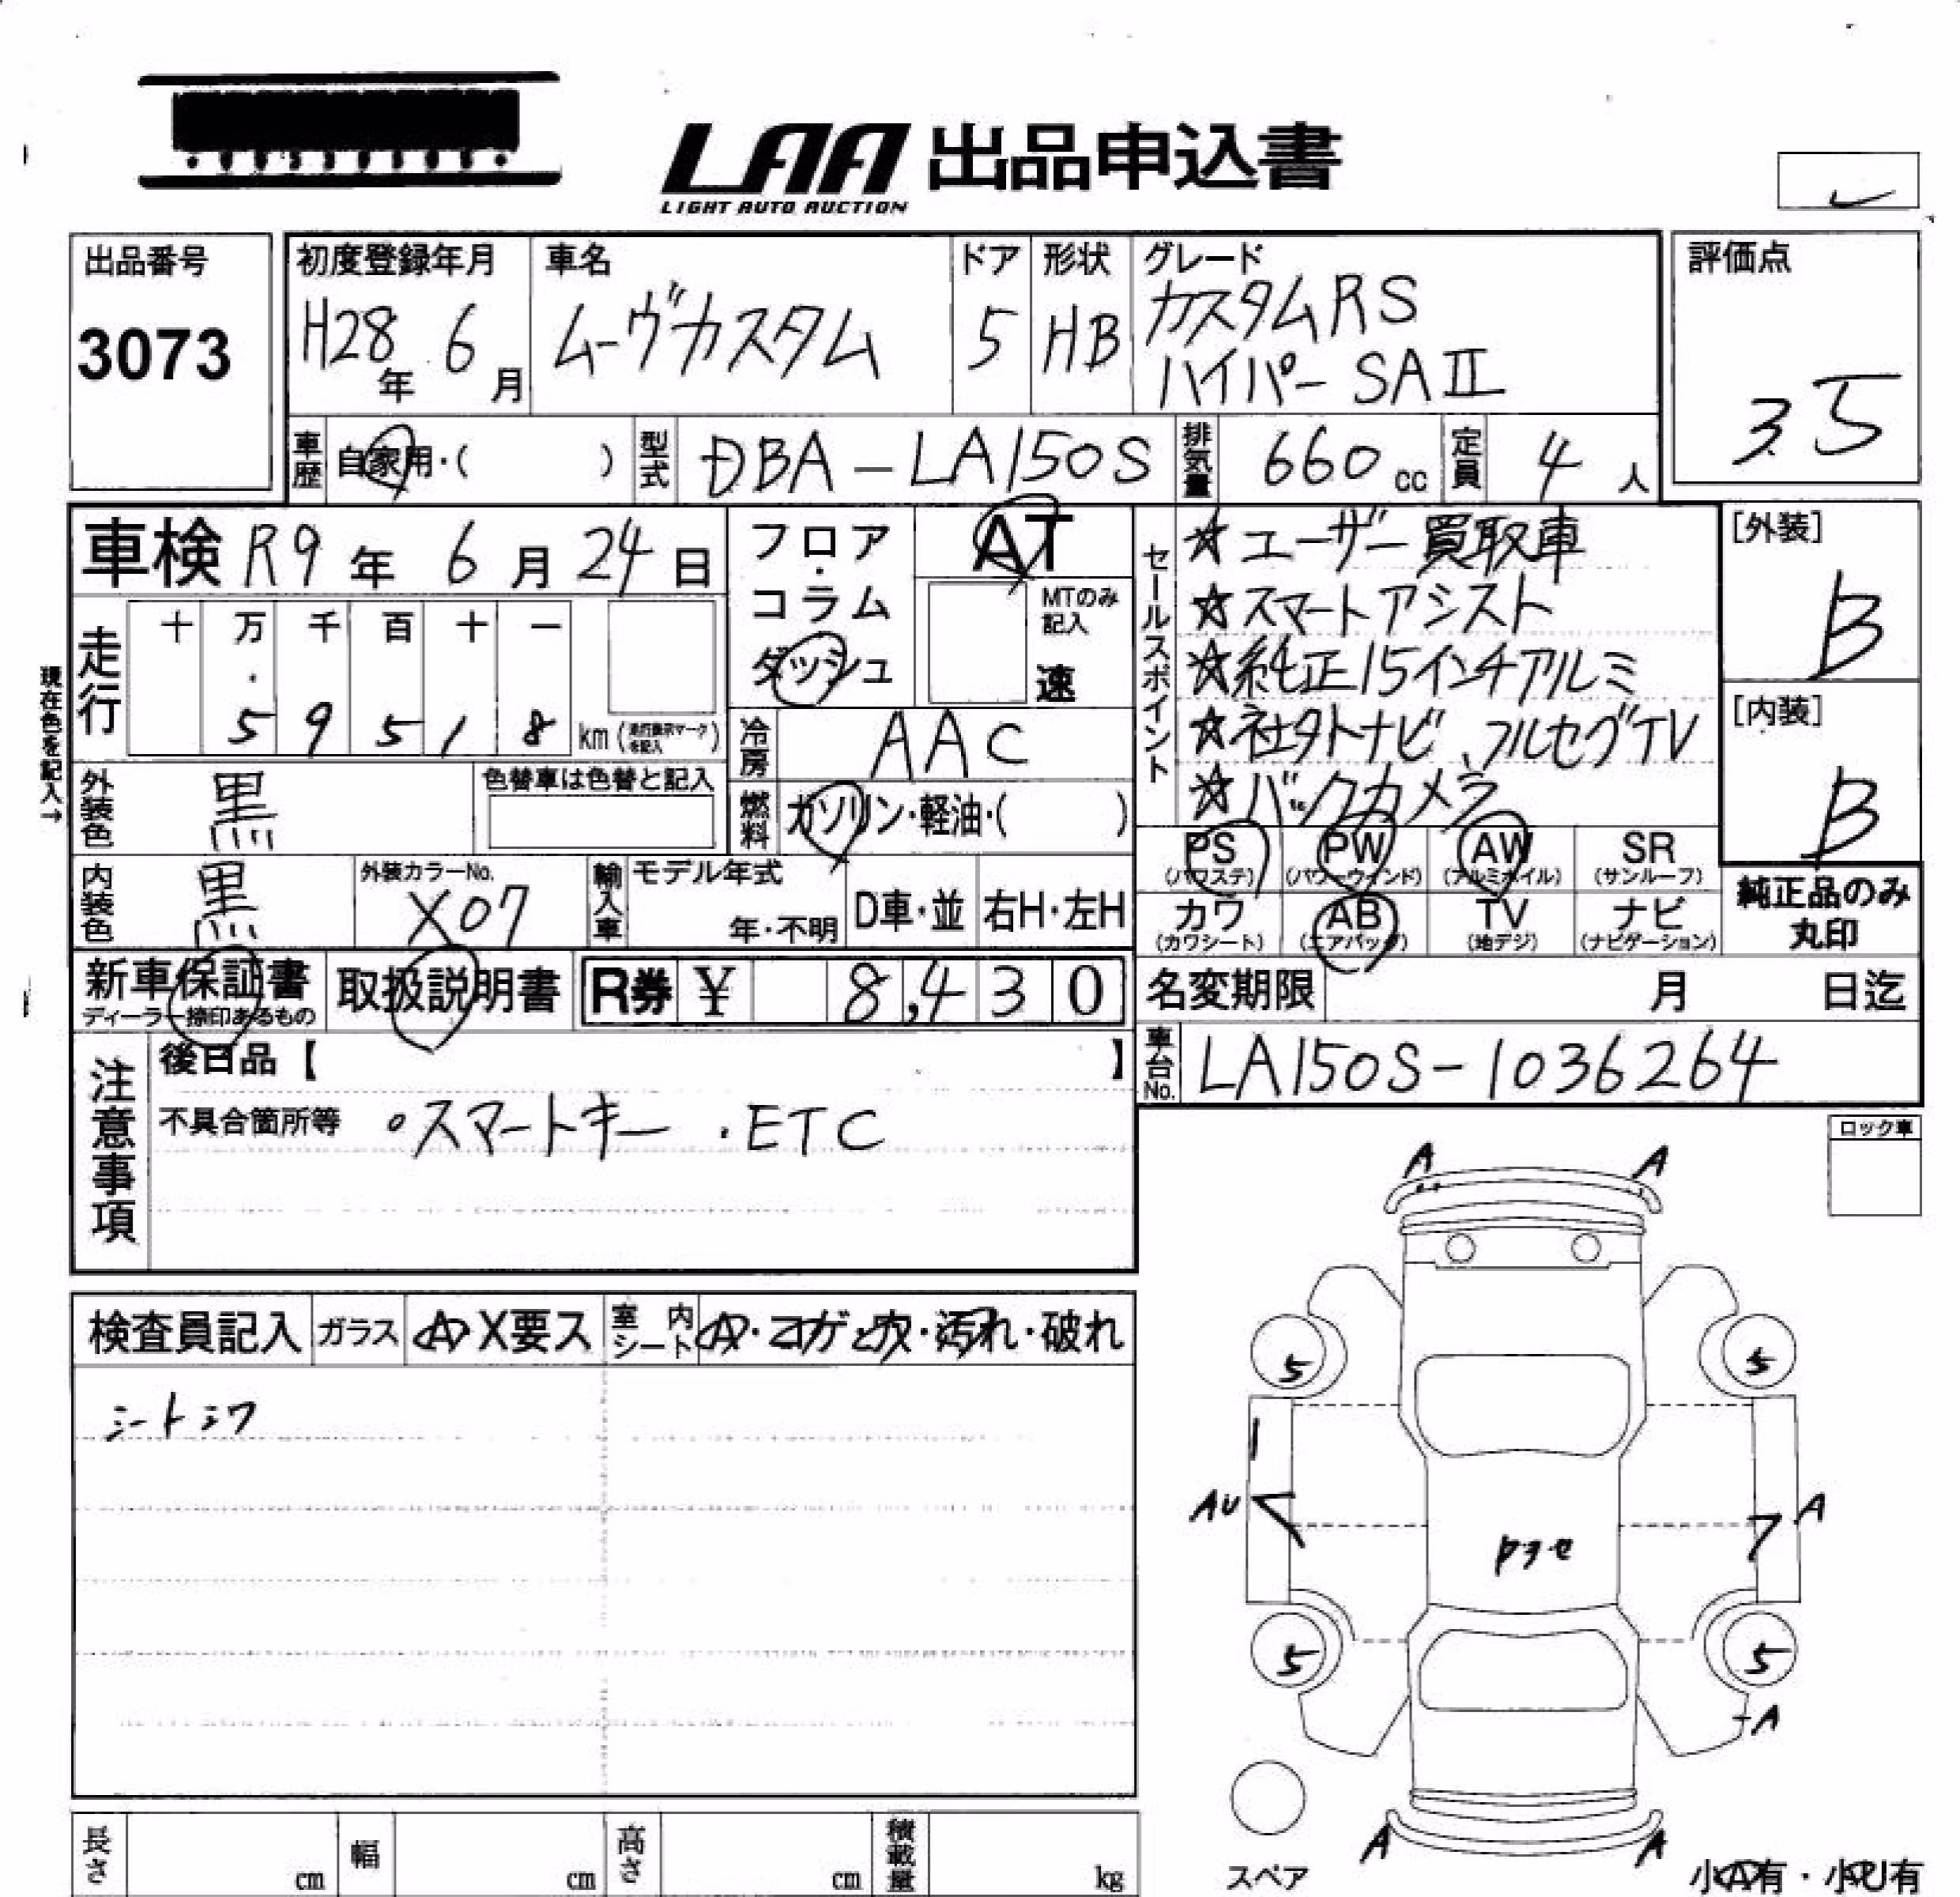 LAA 出品申込書
LIGHT AUTO AUCTION
出品番号
3073
初度登録年月
H28年 6月
車名
ムーヴカスタム
ドア
5
形状
HB
グレード
カスタムRS
ハイパーSAⅡ
評価点
3.5
車歴 自家用・( )
型式 DBA-LA150S
排気量 660cc
定員 4人
車検 R9年 6月 24日
フロア・コラム
ダッシュ
AT
MTのみ記入
速
現在色を記入→
走行
十 万 千 百 十 一
5 9 5 1 8 km (走行表示マークを記入)
冷房 AAC
外装色 黒
色替車は色替と記入
燃料 ガソリン・軽油・( )
内装色 黒
外装カラーNo.
X07
輸入車
モデル年式
年・不明
D車・並
右H・左H
セールスポイント
☆ユーザー買取車
☆スマートアシスト
☆純正15インチアルミ
☆社外ナビ、フルセグTV
☆バックカメラ
[外装]
B
[内装]
B
PS (パワステ)
PW (パワーウインド)
AW (アルミホイル)
SR (サンルーフ)
カワ (カワシート)
AB (エアバッグ)
TV (地デジ)
ナビ (ナビゲーション)
純正品のみ
丸印
新車保証書
ディーラー捺印あるもの
取扱説明書
R券 ¥ 8,430
名変期限 月 日迄
車台No. LA150S-1036264
注意事項
後日品【 】
不具合箇所等 ・スマートキー ・ETC
ロック車
検査員記入
ガラス
A・X要ス
室内シート
A・コゲ・穴・汚れ・破れ
シートシワ
A A
5 5
AU A
5 5
A
A A
スペア
小A有・小U有
長さ cm
幅 cm
高さ cm
積載量 kg